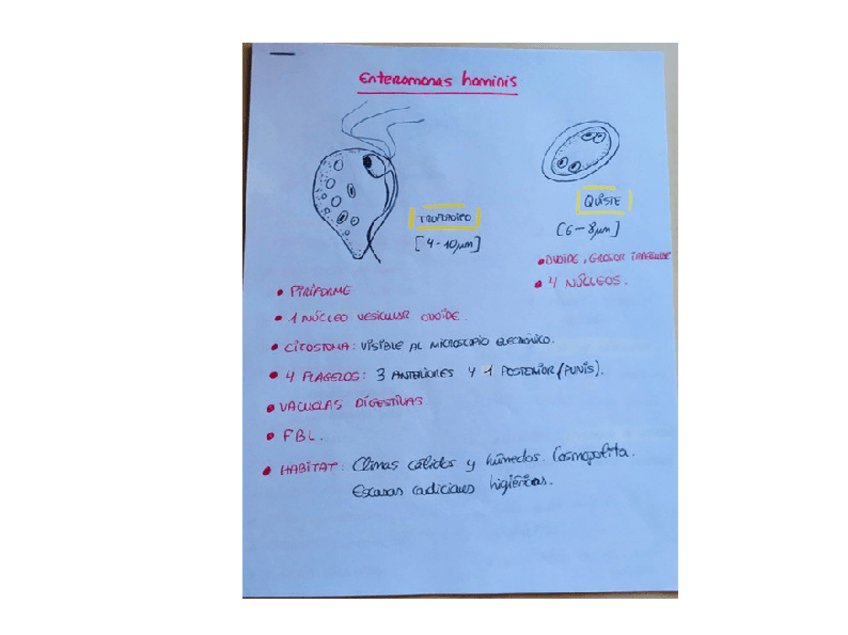 Enteromonas hominis
TROFOZOÍTO
[4-10µm]
QUISTE
[6-8µm]
• OVOIDE, GROSOR IRREGULAR
• 4 NÚCLEOS.
• PIRIFORME
• 1 NÚCLEO VESICULAR OVOIDE.
• CITOSTOMA: VISIBLE AL MICROSCOPIO ELECTRÓNICO.
• 4 FLAGELOS: 3 ANTERIORES Y 1 POSTERIOR (FUNIS).
• VACUOLAS DIGESTIVAS
• FBL.
• HABITAT: Climas cálidos y húmedos. Cosmopolita.
Escasas condiciones higiénicas.